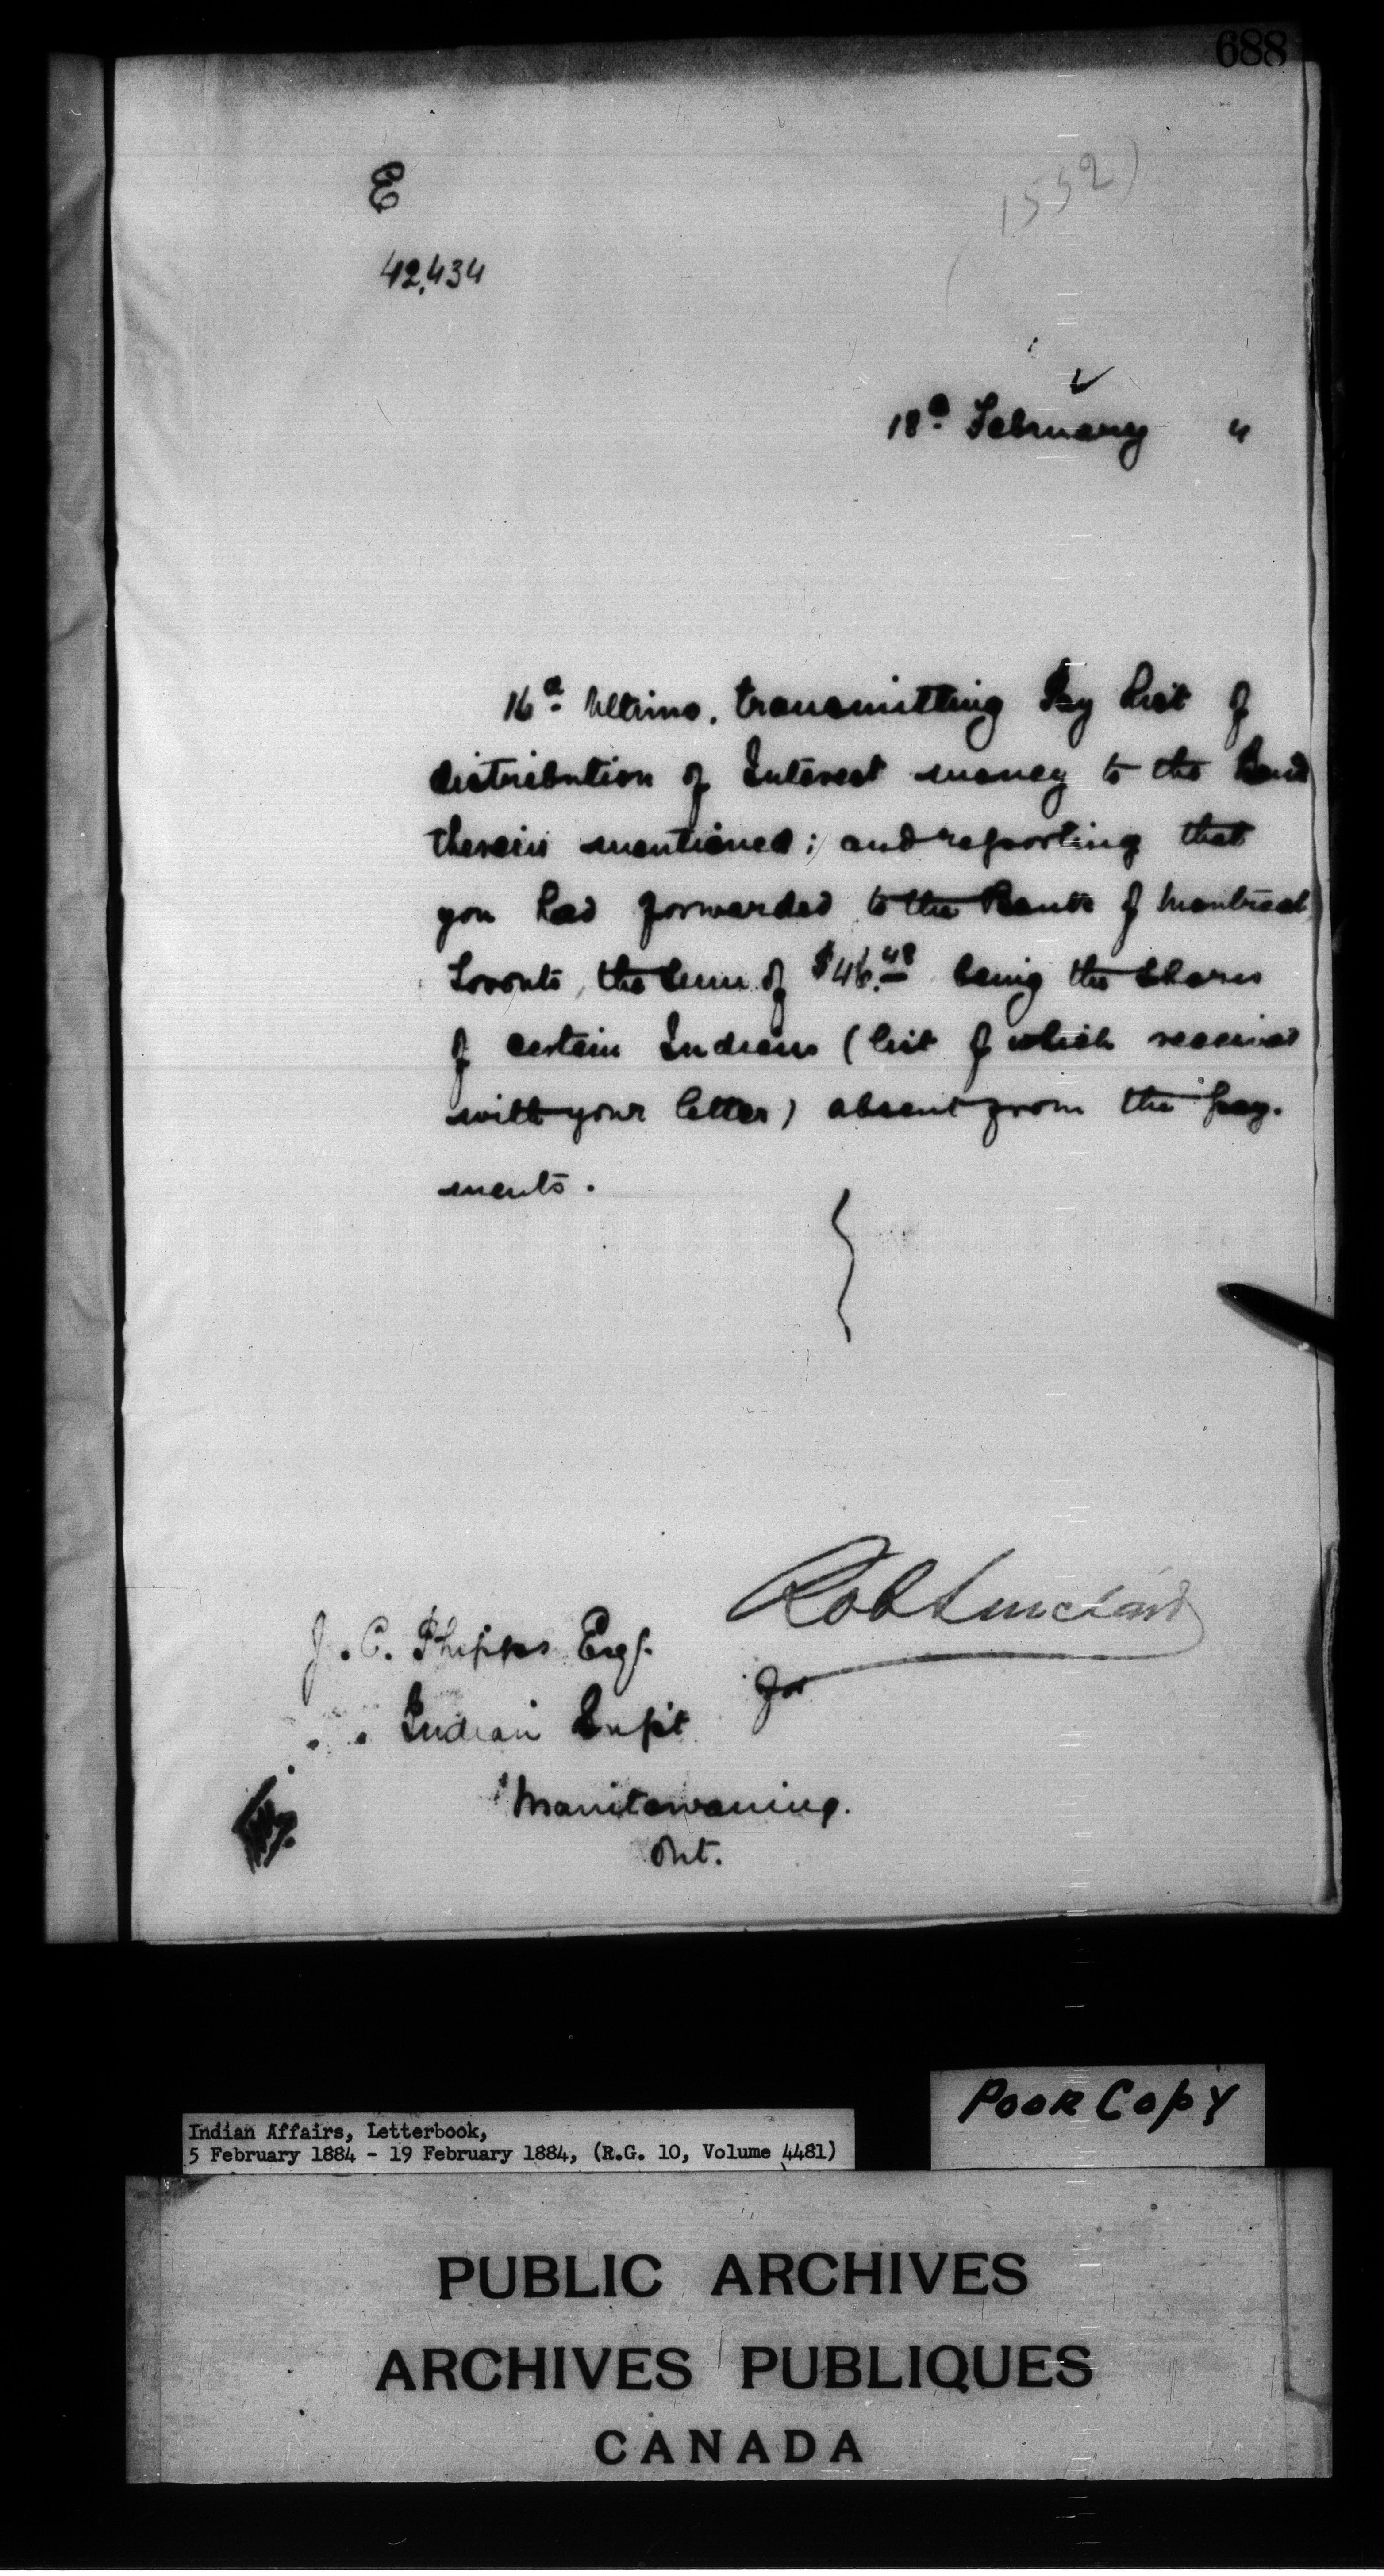 688
(1552)
E
42,434
18th February "
16th Ultimo, transmitting Pay List of
distribution of Interest money to the Band
therein mentioned; and reporting that
you had forwarded to the Bank of Montreal
Toronto, the sum of $46.48 being the shares
of certain Indians (list of which received
with your letter) absent from the pay-
ments.
Rob Sinclair
for
J. C. Phipps Esq.
Indian Supt
Manitowaning.
Ont.
Poor Copy
Indian Affairs, Letterbook,
5 February 1884 - 19 February 1884, (R.G. 10, Volume 4481)
PUBLIC ARCHIVES
ARCHIVES PUBLIQUES
CANADA